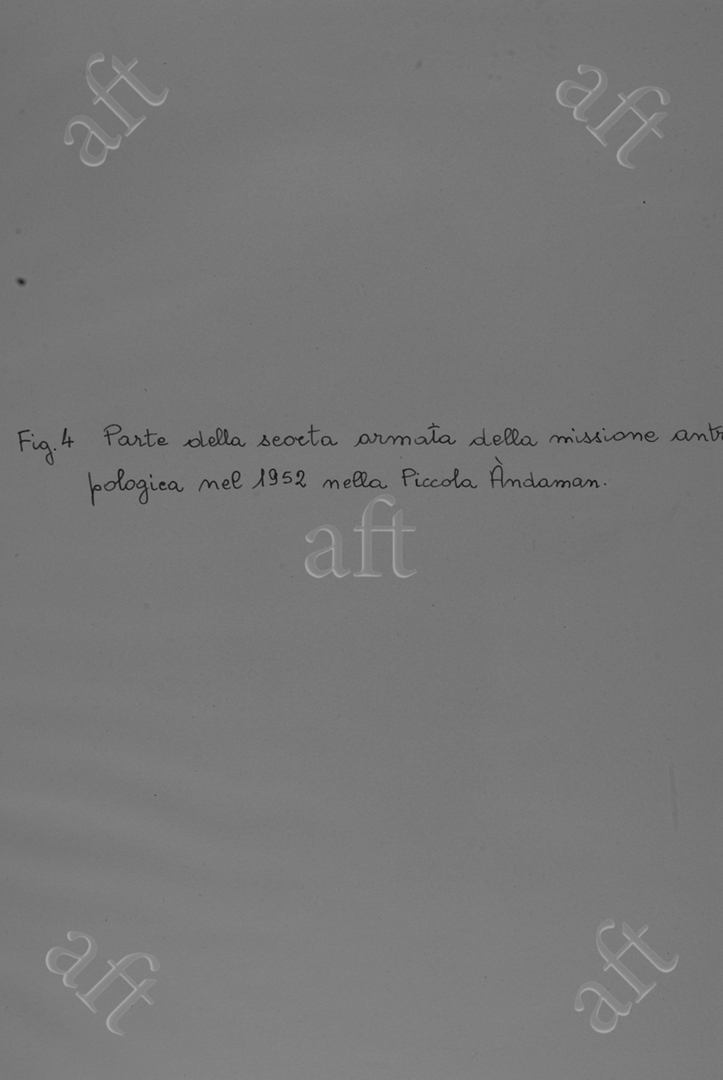 Fig. 4 Parte della scorta armata della missione antr
pologica nel 1952 nella Piccola Àndaman.
aft
aft
aft
aft
aft